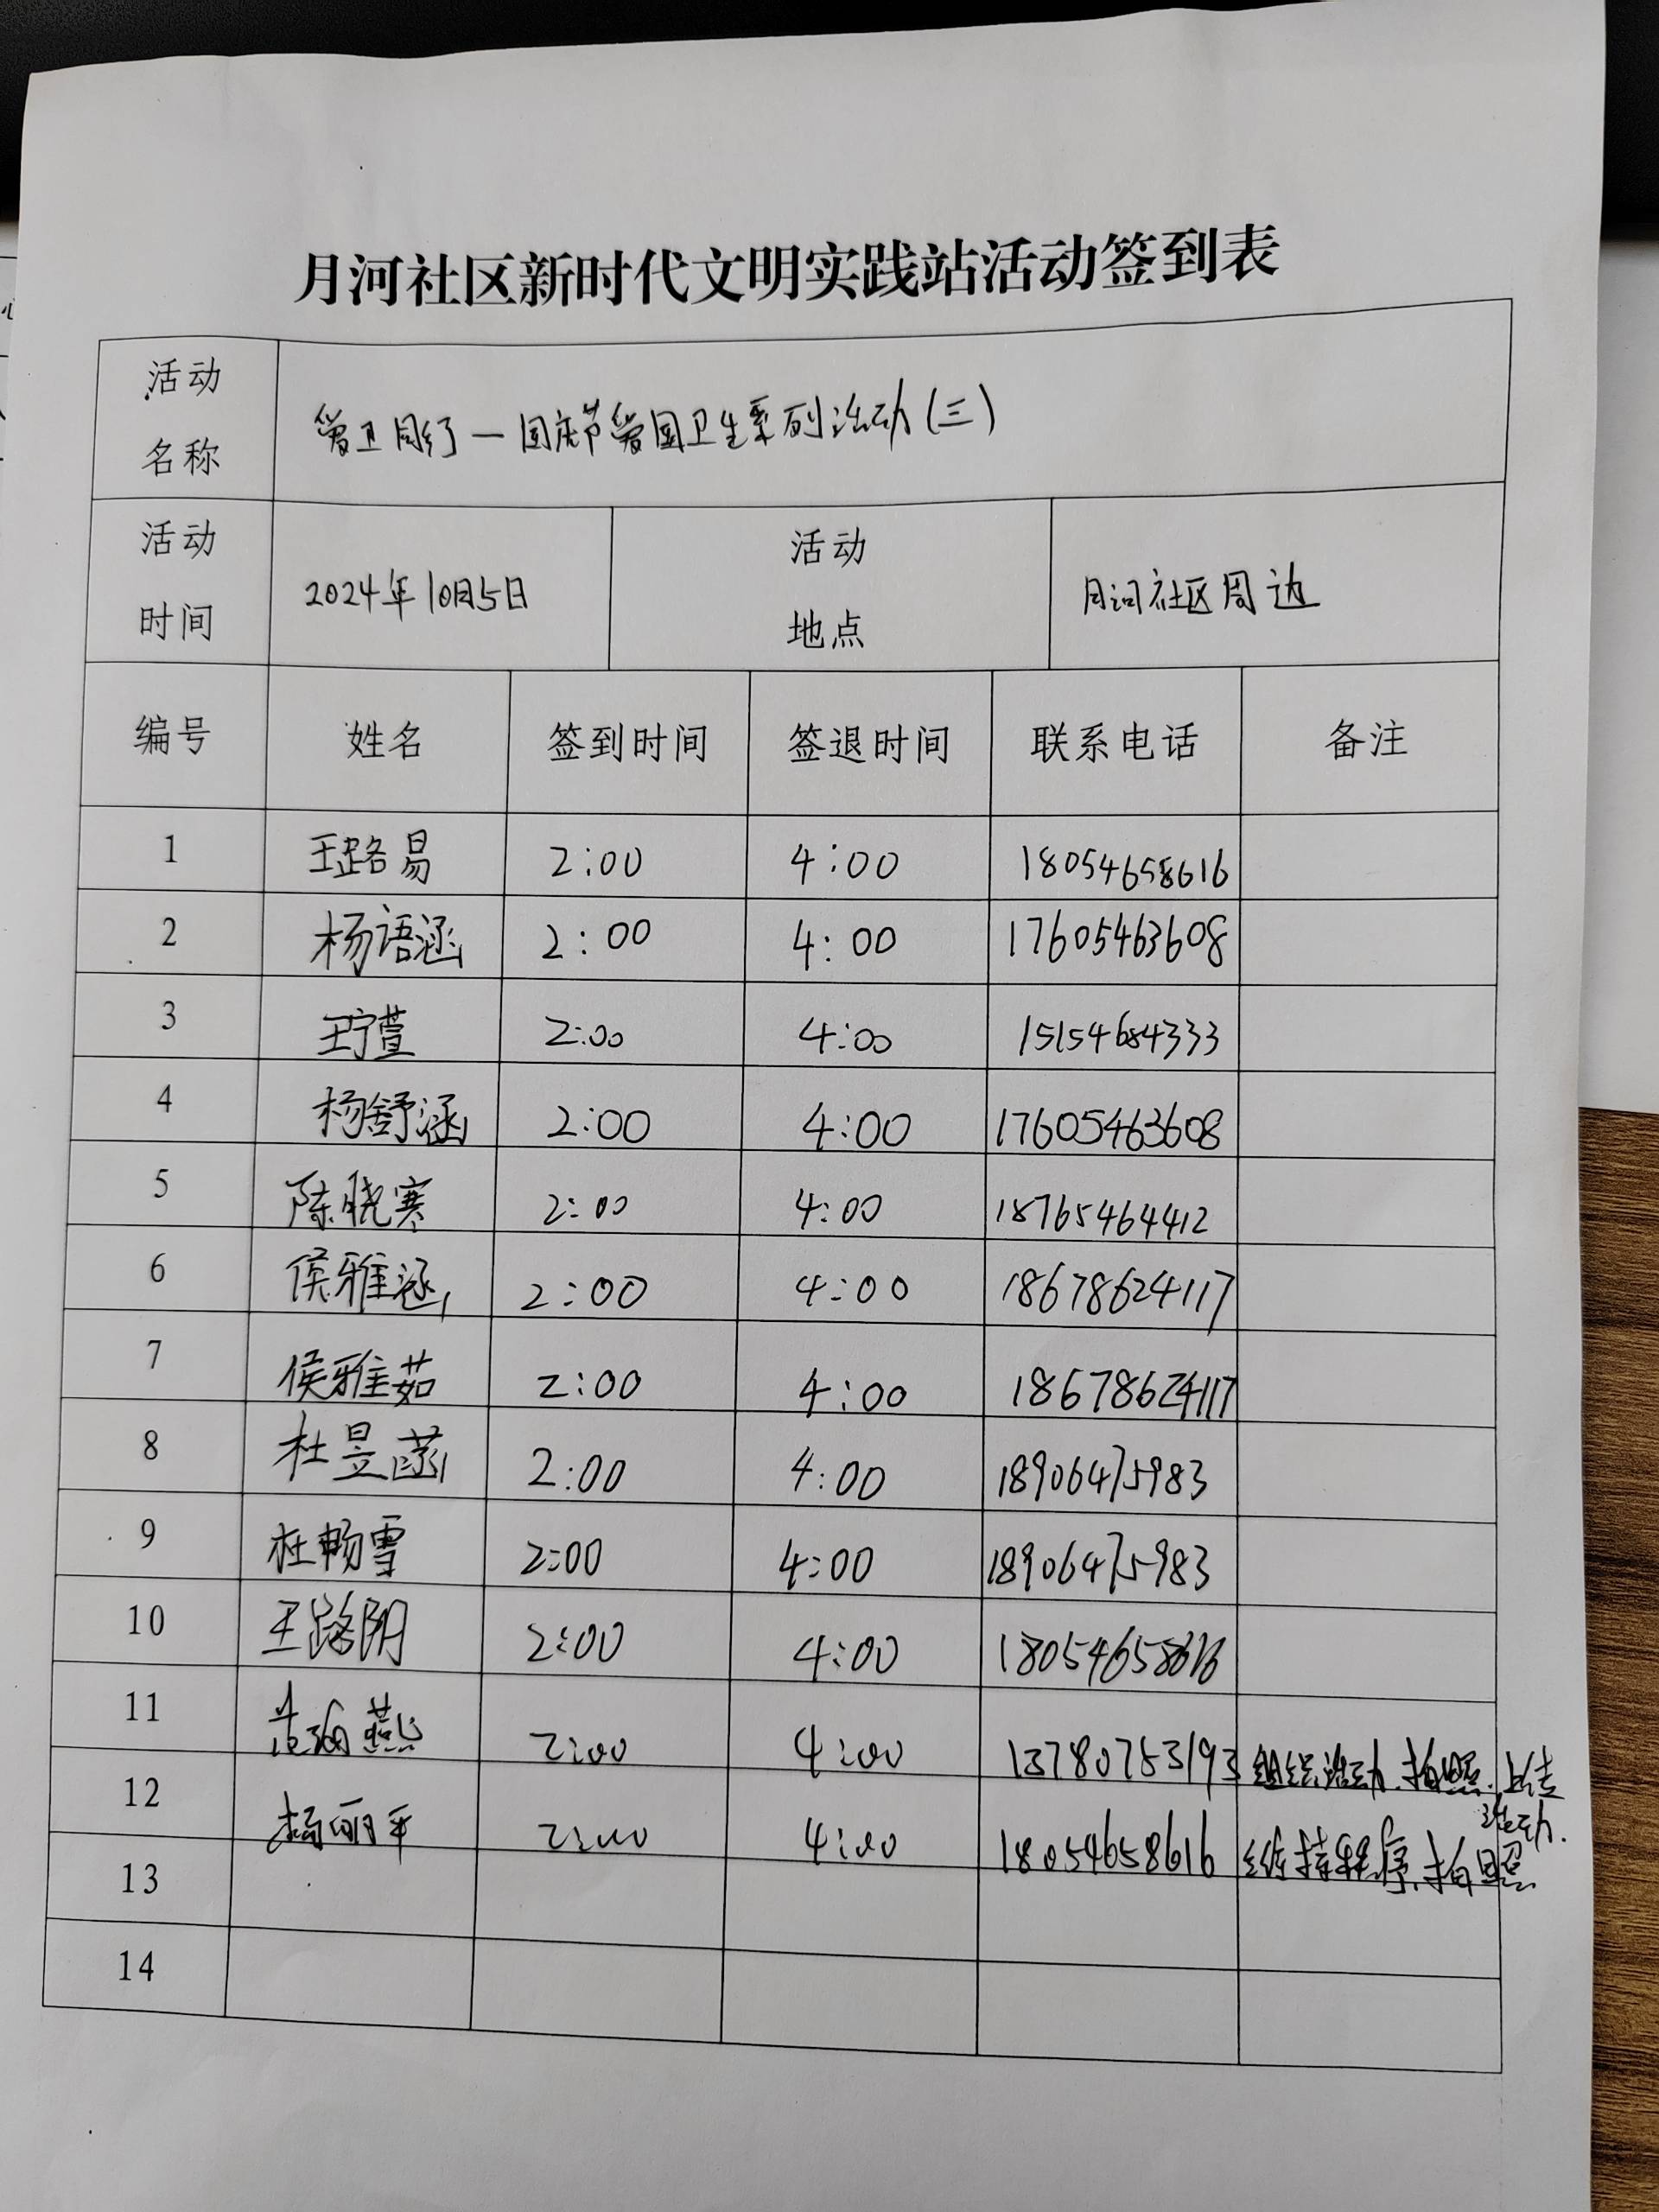 月河社区新时代文明实践站活动签到表
活动名称 爱卫同行—国庆节爱国卫生系列活动(三)
活动时间 2024年10月5日 活动地点 月河社区周边
编号 姓名 签到时间 签退时间 联系电话 备注
1 王路易 2:00 4:00 18054658616
2 杨语涵 2:00 4:00 17605463608
3 王宁萱 2:00 4:00 15154684333
4 杨舒涵 2:00 4:00 17605463608
5 陈晓寒 2:00 4:00 18765464412
6 侯雅涵 2:00 4:00 18678624117
7 侯雅茹 2:00 4:00 18678624117
8 杜昱菡 2:00 4:00 18906475983
9 杜畅雪 2:00 4:00 18906475983
10 王路阴 2:00 4:00 18054658616
11 范海燕 2:00 4:00 13780753193 组织活动.拍照.上传活动.
12 杨丽平 2:00 4:00 18054658616 维持秩序.拍照
13
14